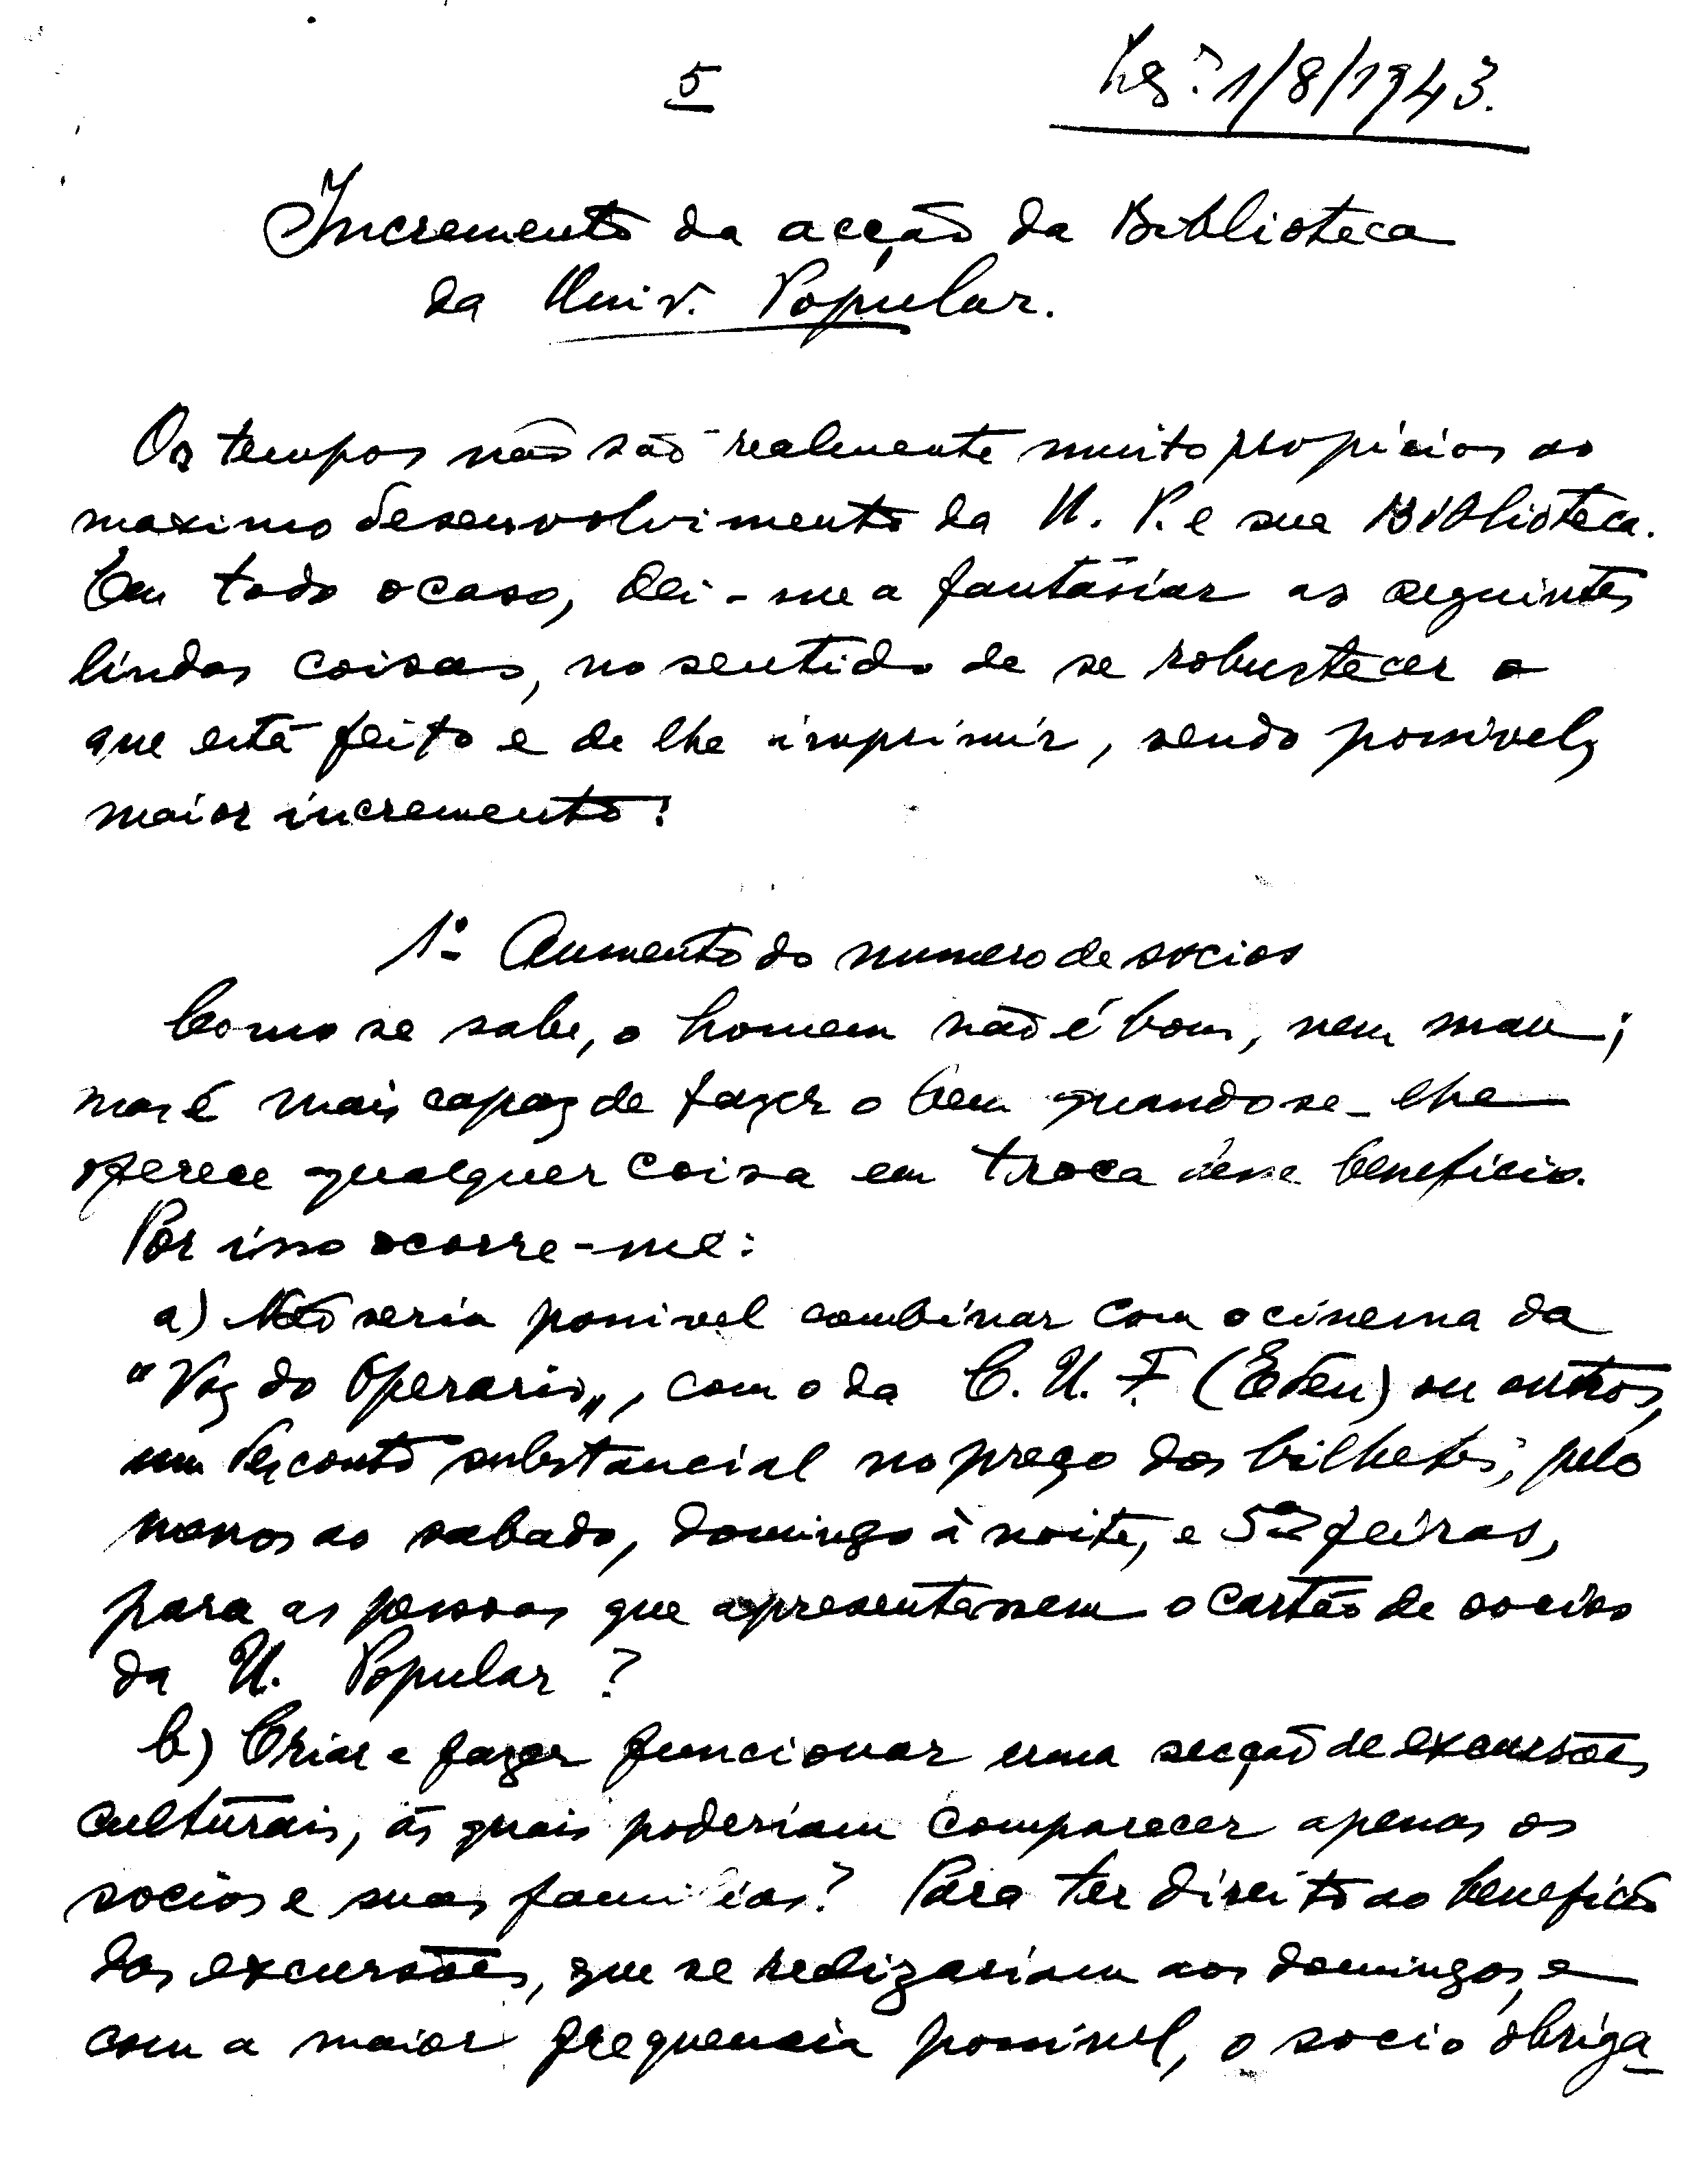 5
Lxª 1/8/1943.
Incremento da acção da Biblioteca
da Univ. Popular.
Os tempos não são realmente muito propicios ao
maximo desenvolvimento da U. P. e sua Biblioteca.
Em todo o caso, dei-me a fantasiar as seguintes
lindas coisas, no sentido de se robustecer o
que está feito e de lhe imprimir, sendo possivel,
maior incremento:
1º Aumento do numero de socios
Como se sabe, o homem não é bom, nem mau;
mas é mais capaz de fazer o bem quando se lhe
oferece qualquer coisa em troca desse beneficio.
Por isso ocorre-me:
a) Não seria possivel combinar com o cinema da
"Voz do Operario", com o da C. U. F. (Eden) ou outros,
um desconto substancial no preço dos bilhetes, pelo
menos ao sabado, domingo à noite, e 5as feiras,
para as pessoas que apresentassem o cartão de socios
da U. Popular?
b) Criar e fazer funcionar uma secção de excursões
culturais, ás quais poderiam comparecer apenas os
socios e suas familias? Para ter direito ao beneficio
das excursões, que se realizariam aos domingos, e
com a maior frequencia possivel, o socio obriga-